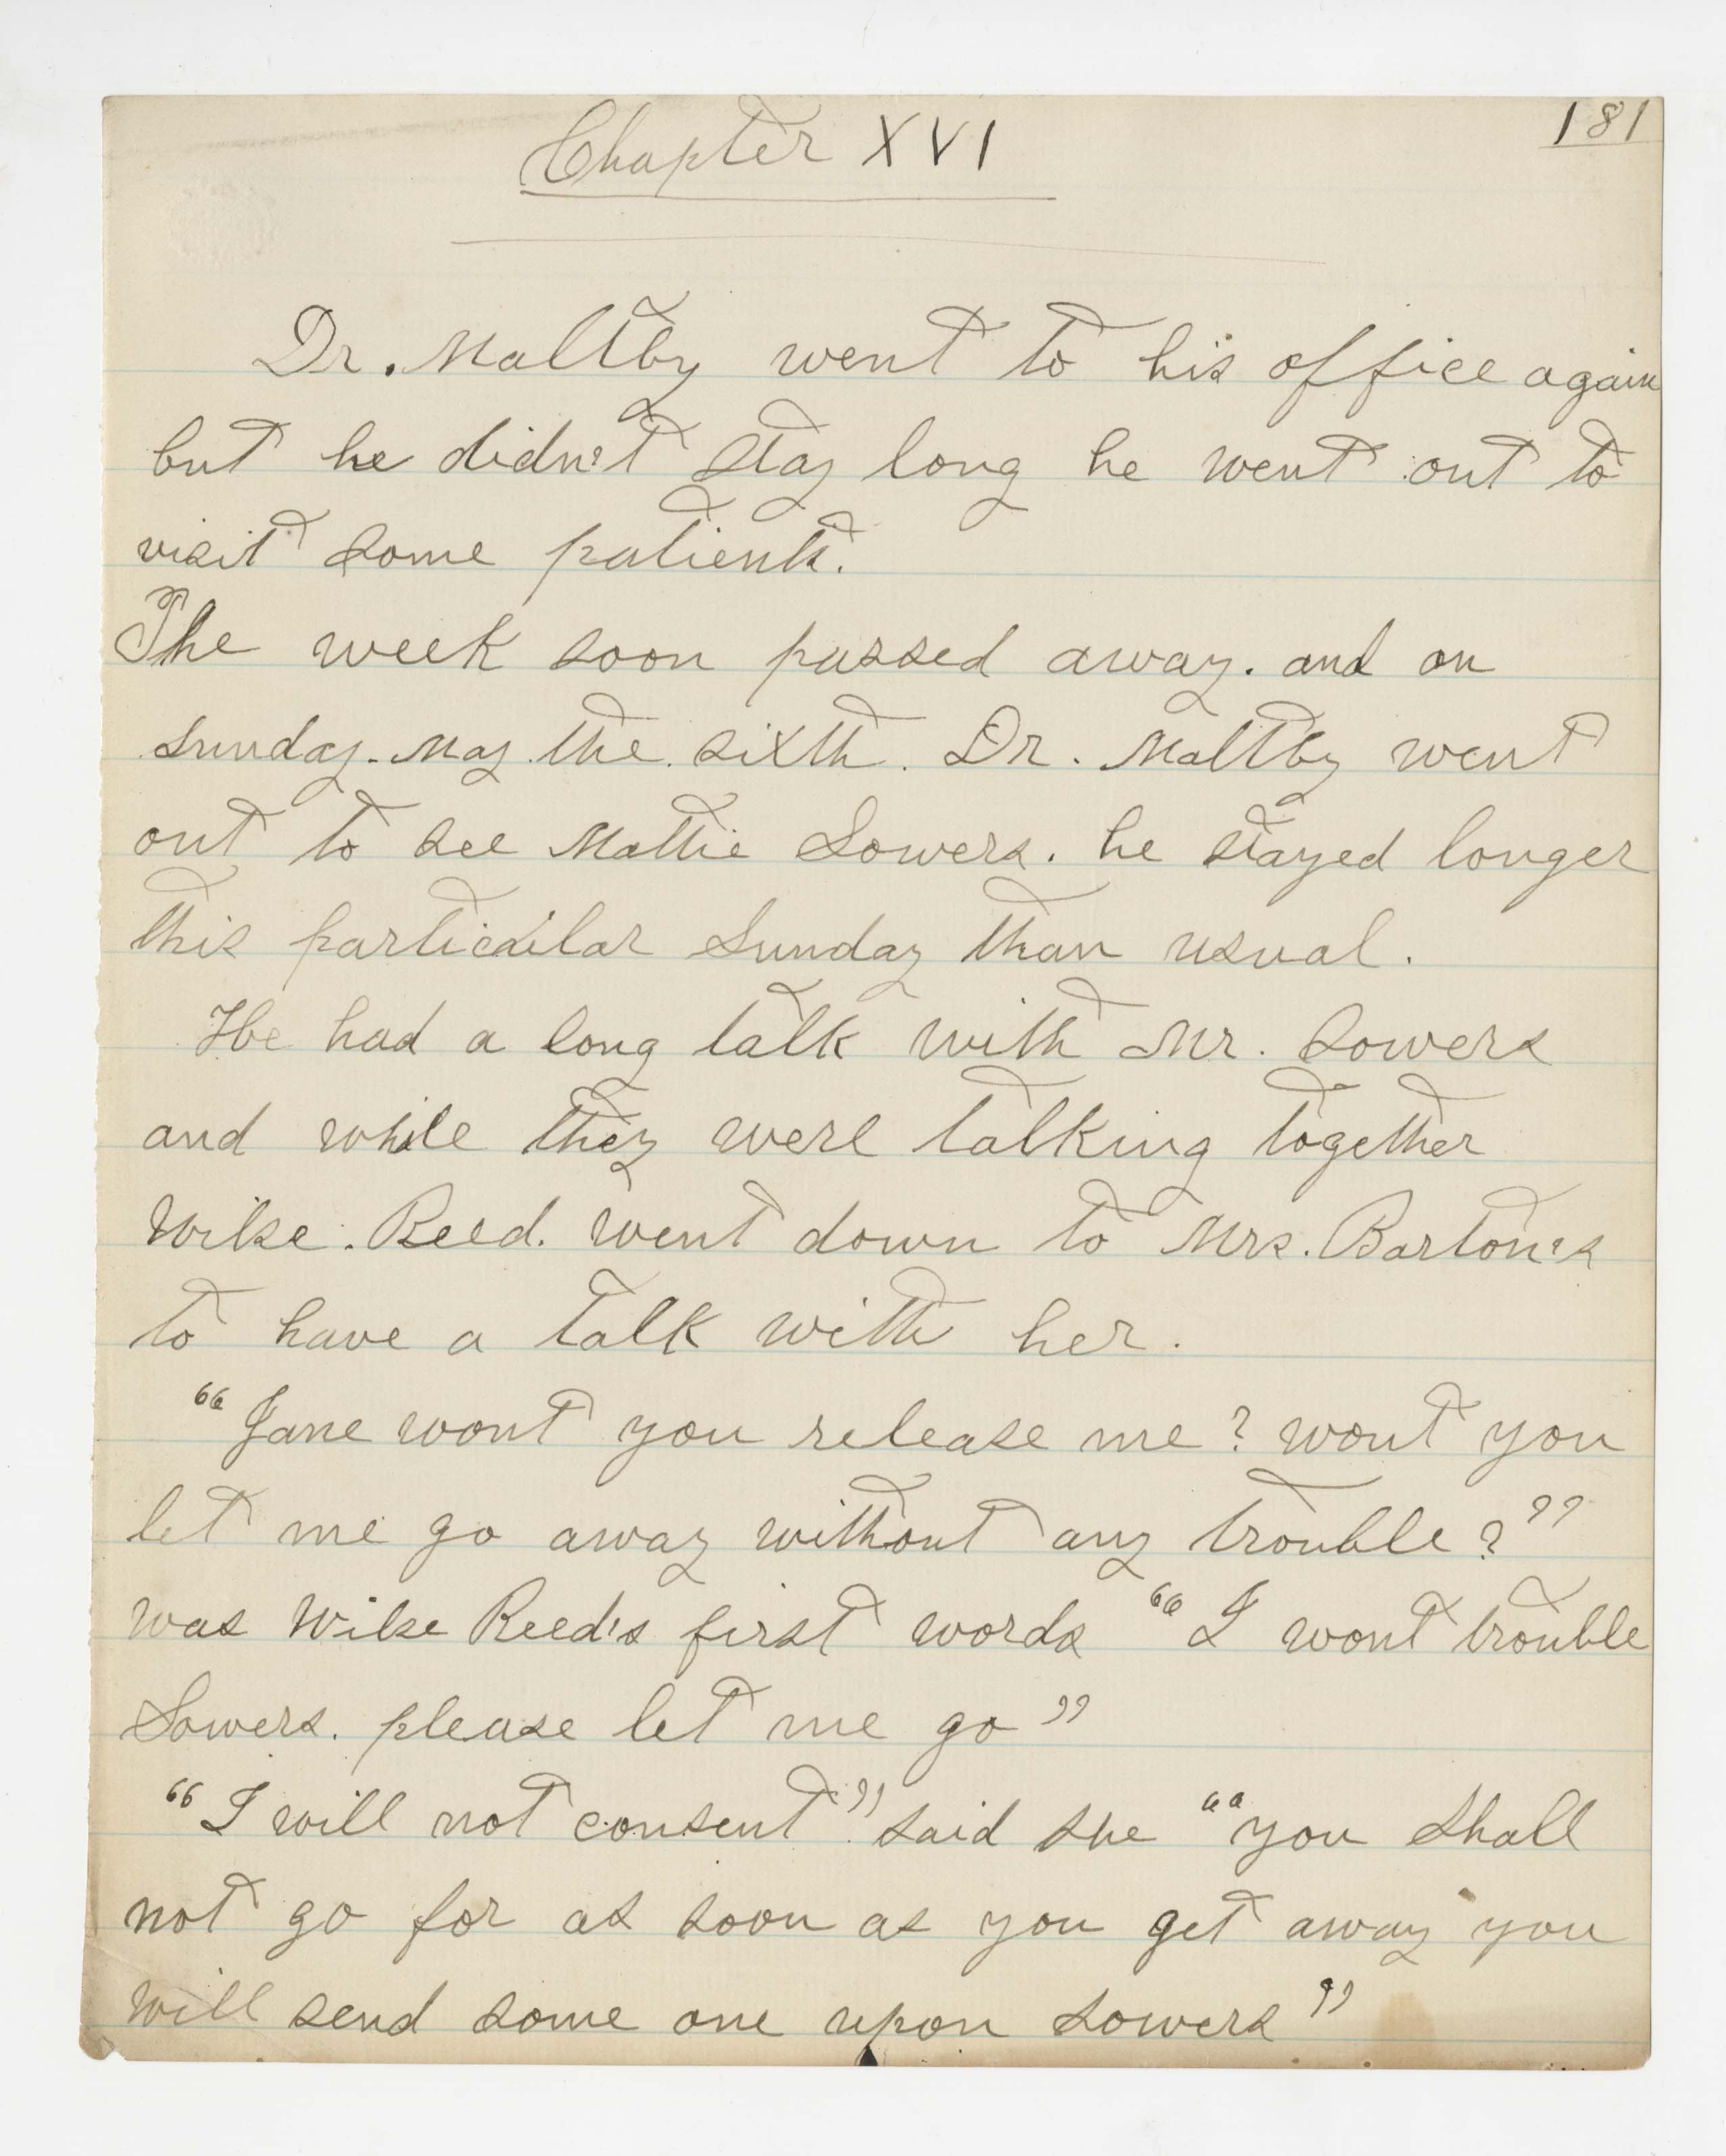 181
Chapter XVI
Dr. Maltby went to his office again
but he didn't stay long he went out to
visit some patients.
The week soon passed away. and on
Sunday. May the sixth. Dr. Maltby went
out to see Mattie Sowers. he stayed longer
this particular Sunday than usual.
He had a long talk with Mr. Sowers
and while they were talking together
Wilse. Reed. went down to Mrs. Barton's
to have a talk with her.
"Jane wont you release me? wont you
let me go away without any trouble?"
was Wilse Reed's first words "I wont trouble
Sowers. please let me go"
"I will not consent" said she "you shall
not go for as soon as you get away you
will send some one upon Sowers"